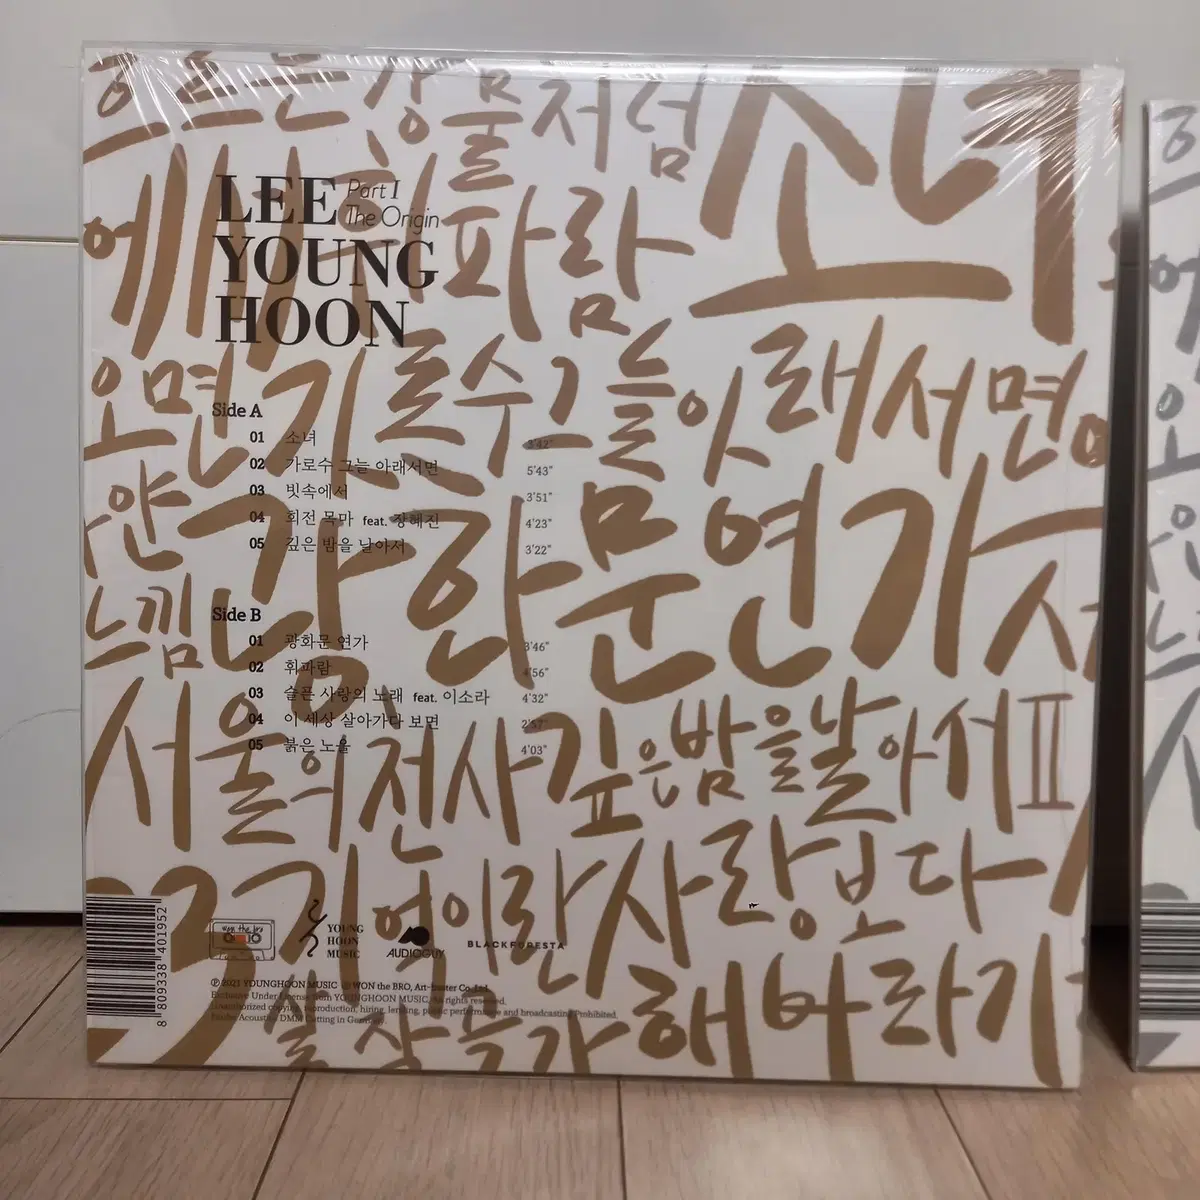 흐르는 강물처럼
소녀
휘파람
LEE Part I
The Origin
YOUNG
HOON
가로수 그늘 아래서면
광화문 연가
느낌
서울의 전사
깊은 밤을 날아서 II
기억이란 사랑보다
해바라기
Side A
01 소녀 3'42"
02 가로수 그늘 아래서면 5'43"
03 빗속에서 3'51"
04 회전 목마 feat. 장혜진 4'23"
05 깊은 밤을 날아서 3'22"
Side B
01 광화문 연가 3'46"
02 휘파람 4'56"
03 슬픈 사랑의 노래 feat. 이소라 4'32"
04 이 세상 살아가다 보면 2'57"
05 붉은 노을 4'03"
8 809338 401952
won the bro
YOUNG
HOON
MUSIC
AUDIOGUY
BLACKFORESTA
℗ 2021 YOUNGHOON MUSIC WON the BRO, Art-Buster Co., Ltd.
Exclusive Under License from YOUNGHOON MUSIC, All rights reserved.
Unauthorized copying, reproduction, hiring, lending, public performance and broadcasting Prohibited.
DMM Cutting in Germany.